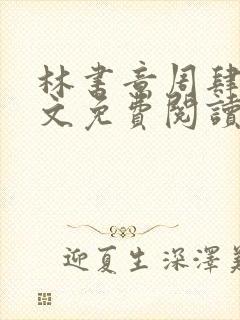 林书音周肆
文免費閱讀
迎夏生深澤